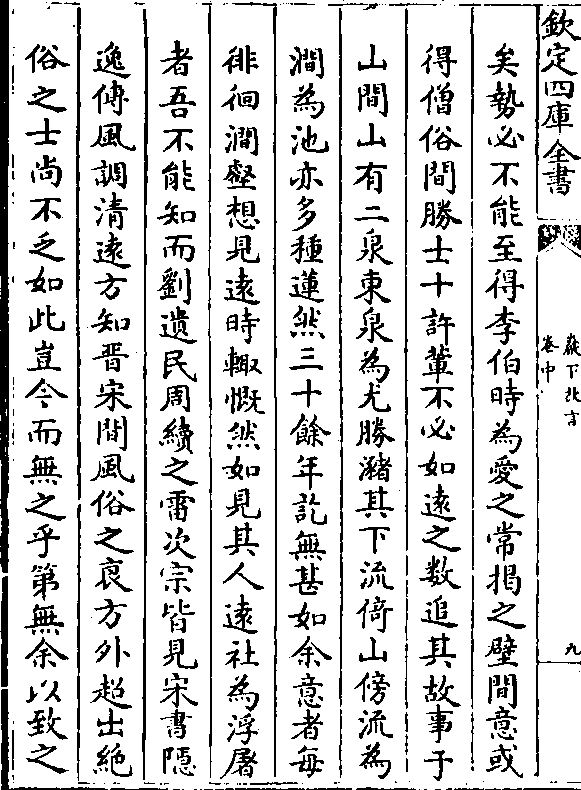 欽定四庫全書
巖下放言
卷中
九
矣勢必不能至得李伯時為愛之常揭之壁間意或
得僧俗間勝士十許輩不必如遠之數追其故事于
山間山有二泉東泉為尤勝瀦其下流倚山傍流為
澗為池亦多種蓮然三十餘年訖無甚如余意者每
徘徊澗壑想見遠時輙慨然如見其人遠社為浮屠
者吾不能知而劉遺民周續之雷次宗皆見宋書隱
逸傳風調清遠方知晉宋間風俗之衰方外超出絶
俗之士尚不乏如此豈今而無之乎第無余以致之